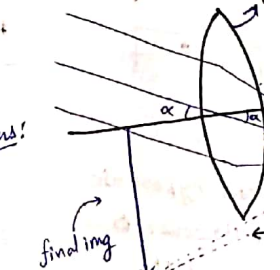 α
α
ns!
final img